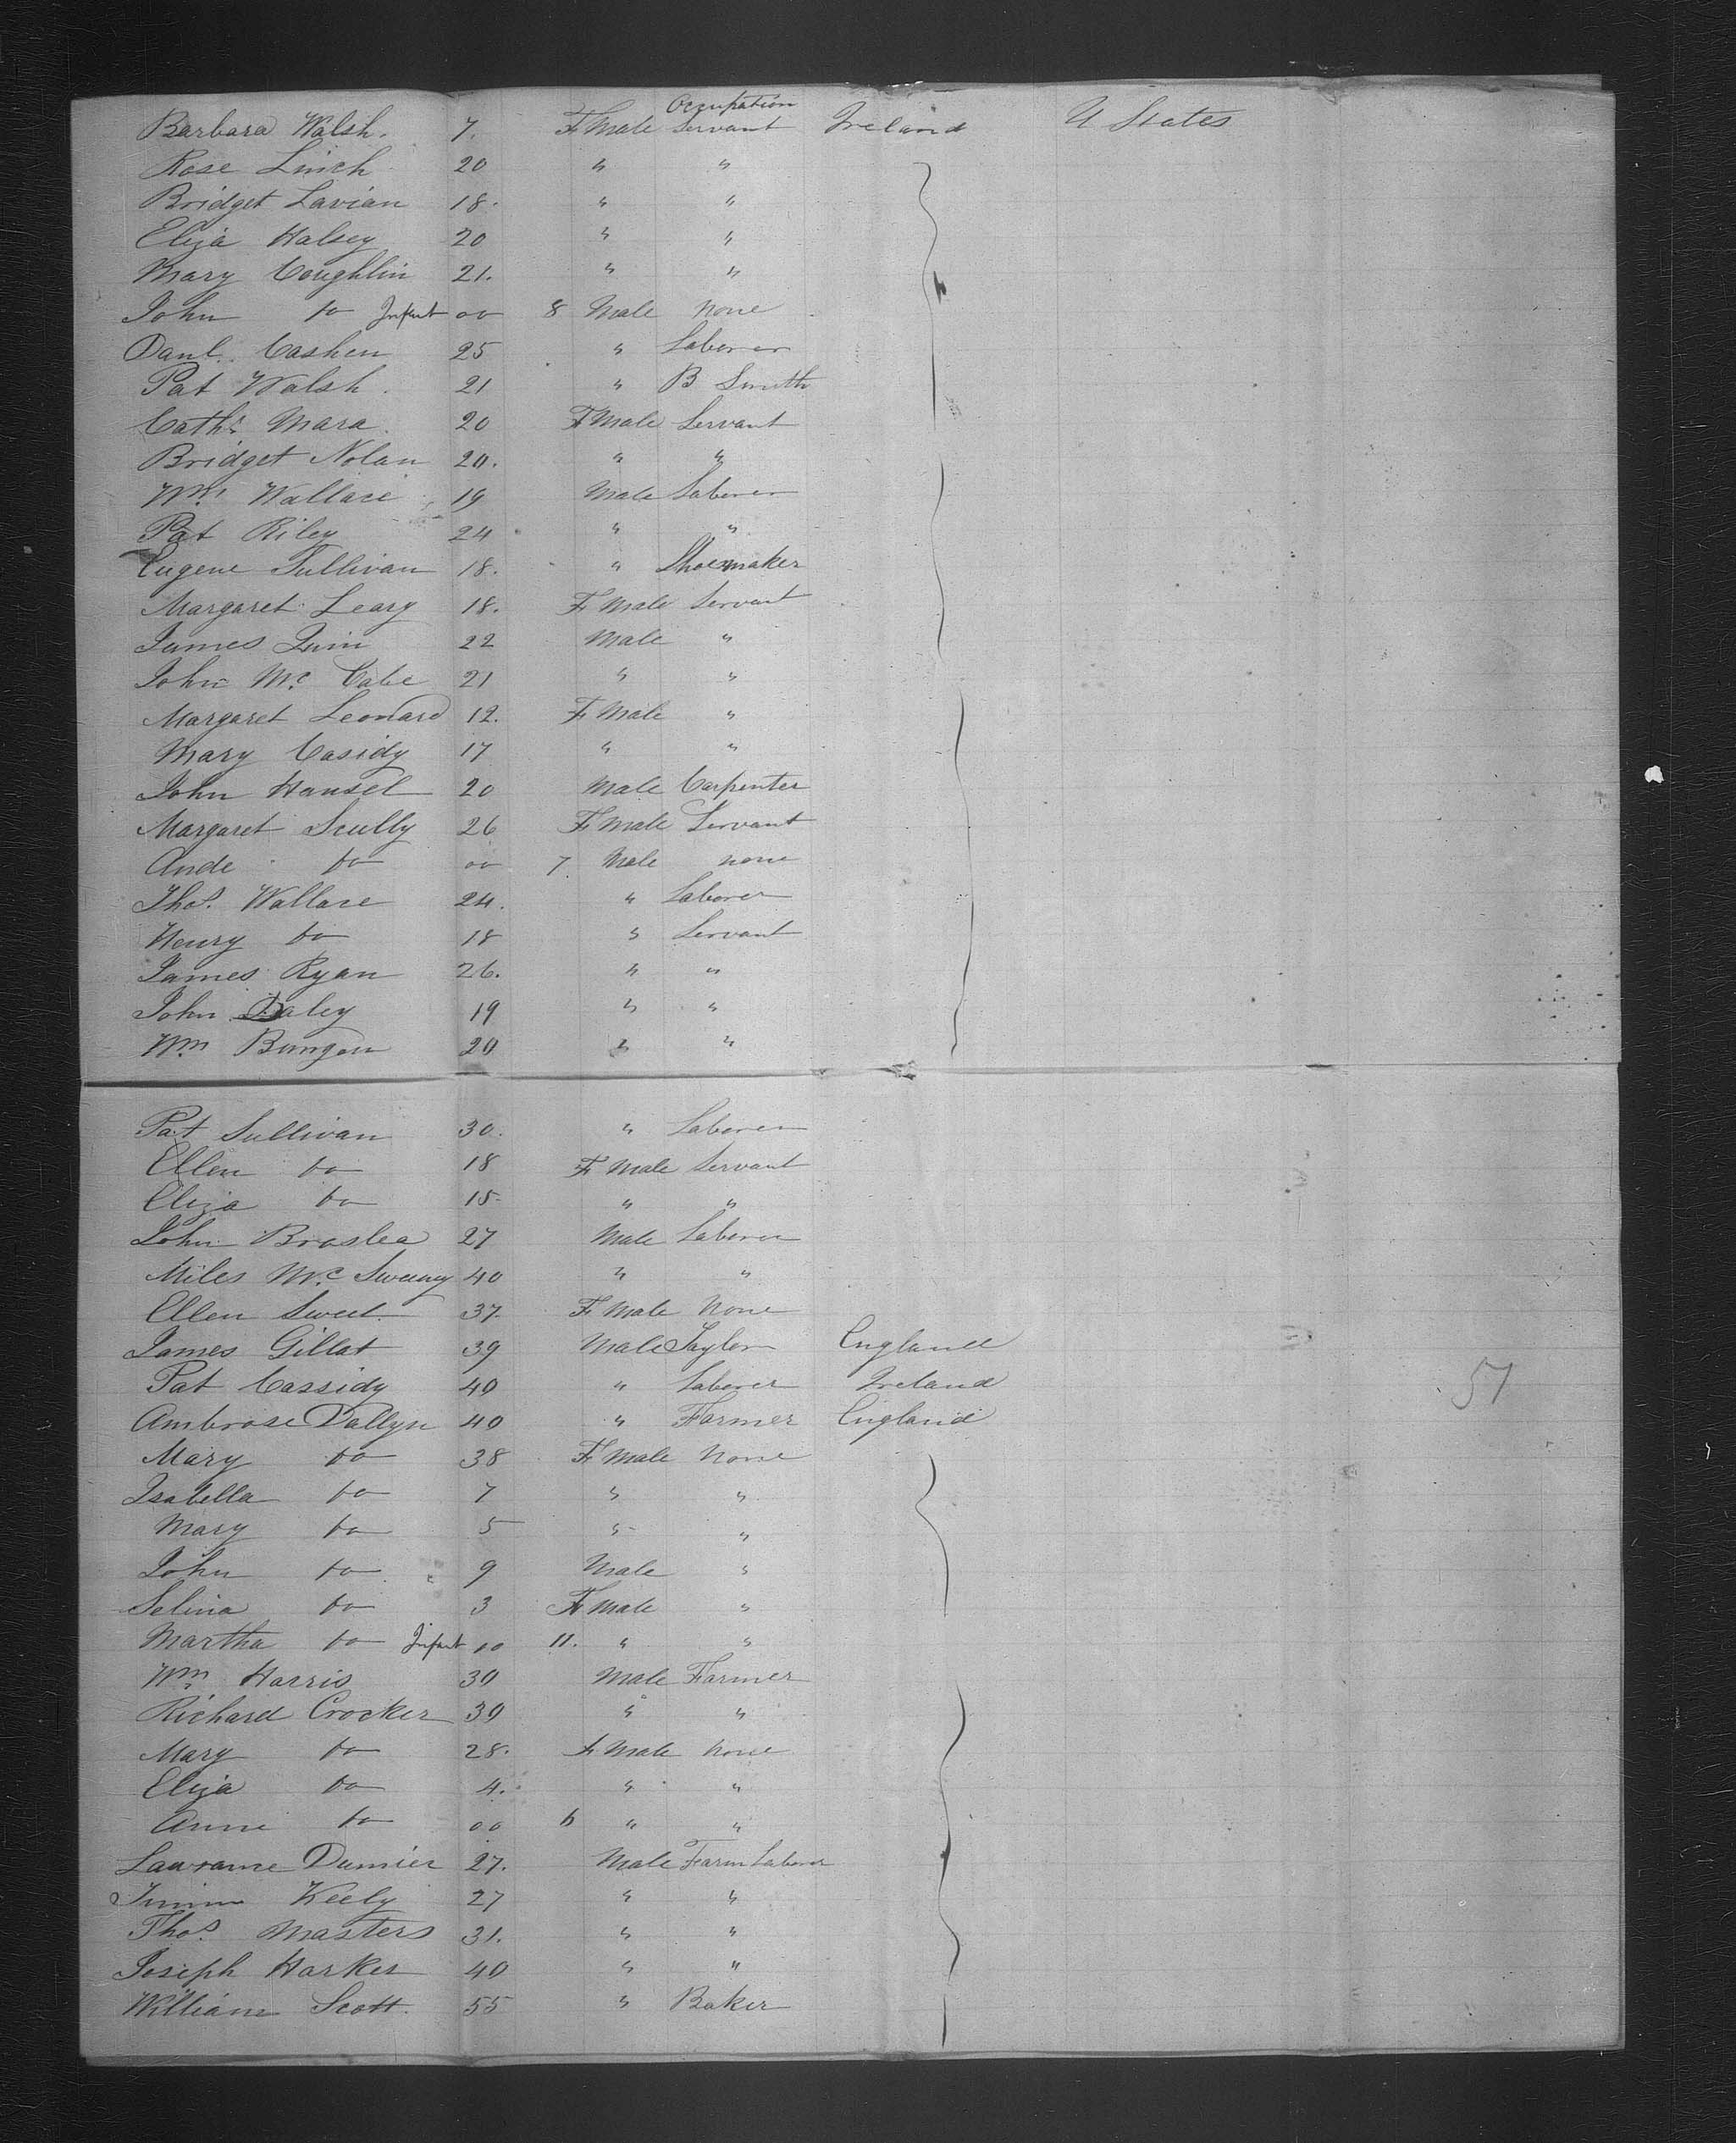 Occupation
Barbara Walsh. 7. F Male Servant Ireland U States
Rose Linch 20 " "
Bridget Lavian 18. " "
Eliza Halsey 20 " "
Mary Coughlin 21. " "
John do Infant 00 8 Male None
Danl. Cashen 25 " Laborer
Pat Walsh 21 " B Smith
Cath: Mara 20 F Male Servant
Bridget Nolan 20. " "
Wm. Wallace 19 Male Laborer
Pat Riley 24 " "
Eugene Sullivan 18. " Shoemaker
Margaret Leary 18. F Male Servant
James Quin 22 Male "
John Mc Cabe 21 " "
Margaret Leonard 12. F Male "
Mary Casidy 17 " "
John Hansel 20 Male Carpenter
Margaret Scully 26 F Male Servant
Ande do 00 7 Male none
Thos. Wallace 24. " Laborer
Henry do 18 " Servant
James Ryan 26. " "
John Daley 19 " "
Wm 20 " "
Pat Sullivan 30. " Laborer
Ellen do 18 F Male Servant
Eliza do 15 " "
John Braslea 27 Male Laborer
Miles Mc Sweeny 40 " "
Ellen Sweet 37. F Male None
James Gillat 39 Male Taylor England
Pat Cassidy 40 " Laborer Ireland
Ambrose Dallyn 40 " Farmer England
51
Mary do 38 F Male None
Isabella do 7 " "
Mary do 5 " "
John do 9 Male "
Selina do 3 F Male "
Martha do Infant 11. " "
Wm Harris 30 Male Farmer
Richard Crocker 30 " "
Mary do 28. F Male None
Eliza do 4. " "
Anne do 00 6 " "
Lawrance Dumier 27. Male Farm Laborer
Keely 27 " "
Thos. Masters 31. " "
Joseph Harker 40 " "
William Scott 55 " Baker